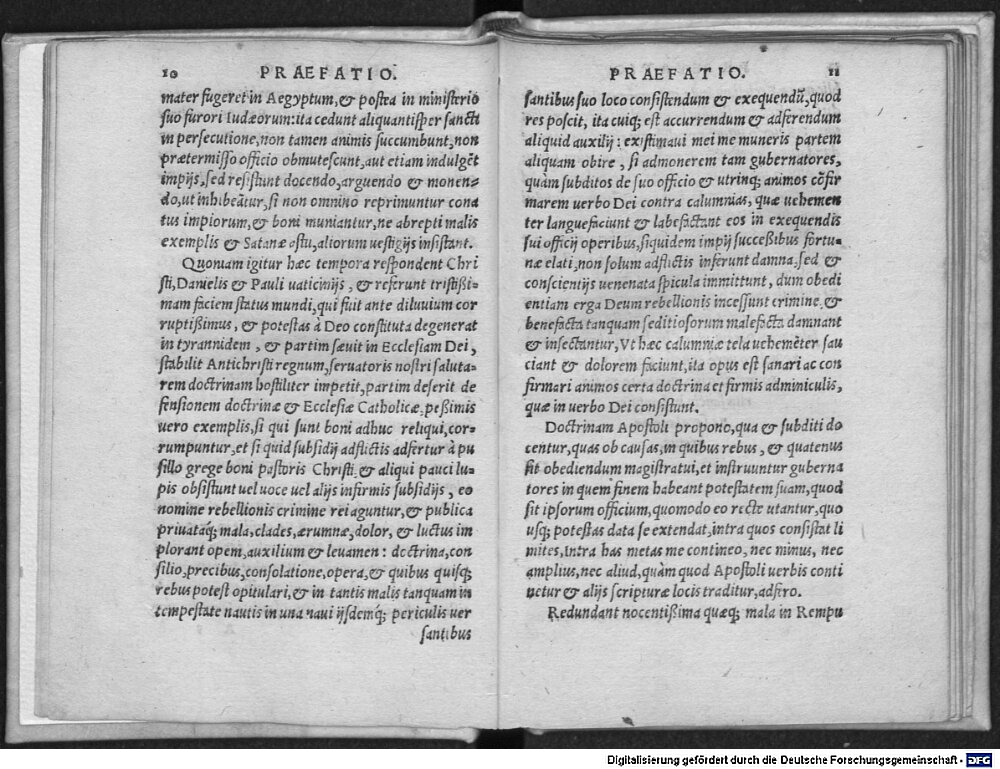 10 PRAEFATIO.
mater fugeret in Aegyptum, & postea in ministerio
suo furori Iudæorum: ita cedunt aliquantisper sancti
in persecutione, non tamen animis succumbunt, non
prætermisso officio obmutescunt, aut etiam indulgẽt
impijs, sed resistunt docendo, arguendo & monen⸗
do, ut inhibeãtur, si non omnino reprimuntur cona
tus impiorum, & boni muniantur, ne abrepti malis
exemplis & Satanæ astu, aliorum uestigijs insistant.
Quoniam igitur hæc tempora respondent Chri
sti, Danielis & Pauli uaticinijs, & referunt tristißi⸗
mam faciem status mundi, qui fuit ante diluuium cor
ruptißimus, & potestas à Deo constituta degenerat
in tyrannidem, & partim sæuit in Ecclesiam Dei,
stabilit Antichristi regnum, seruatoris nostri saluta⸗
rem doctrinam hostiliter impetit, partim deserit de
fensionem doctrinæ & Ecclesiæ Catholicæ, peßimis
uero exemplis, si qui sunt boni adhuc reliqui, cor⸗
rumpuntur, et si quid subsidij adflictis adfertur à pu
sillo grege boni pastoris Christi, & aliqui pauci lu⸗
pis obsistunt uel uoce uel alijs infirmis subsidijs, eo
nomine rebellionis crimine rei aguntur, & publica
priuataq́; mala, clades, ærumnæ, dolor, & luctus im
plorant opem, auxilium & leuamen: doctrina, con
silio, precibus, consolatione, opera, & quibus quisq;
rebus potest opitulari, & in tantis malis tanquam in
tempestate nautis in una naui ijsdemq́; periculis uer
santibus
PRAEFATIO. 11
santibus suo loco consistendum & exequendũ, quod
res poscit, ita cuiq; est accurrendum & adferendum
aliquid auxilij: existimaui mei me muneris partem
aliquam obire, si admonerem tam gubernatores,
quàm subditos de suo officio & utrinq; animos cõfir
marem uerbo Dei contra calumnias, quæ uehemen
ter languefaciunt & labefactant eos in exequendis
sui officij operibus, siquidem impij succeßibus fortu⸗
næ elati, non solum adflictis inferunt damna, sed &
conscientijs uenenata spicula immittunt, dum obedi
entiam erga Deum rebellionis incessunt crimine, &
benefacta tanquam seditiosorum malefacta damnant
& insectantur, Vt hæc calumniæ tela uehemẽter sau
ciant & dolorem faciunt, ita opus est sanari ac con
firmari animos certa doctrina et firmis adminiculis,
quæ in uerbo Dei consistunt.
Doctrinam Apostoli propono, qua & subditi do
centur, quas ob causas, in quibus rebus, & quatenus
sit obediendum magistratui, et instruuntur guberna
tores in quem finem habeant potestatem suam, quod
sit ipsorum officium, quomodo eo recte utantur, quo
usq; potestas data se extendat, intra quos consistat li
mites, Intra has metas me contineo, nec minus, nec
amplius, nec aliud, quàm quod Apostoli uerbis conti
netur & alijs scripturæ locis traditur, adfero.
Redundant nocentißima quæq; mala in Rempu
Digitalisierung gefördert durch die Deutsche Forschungsgemeinschaft - DFG